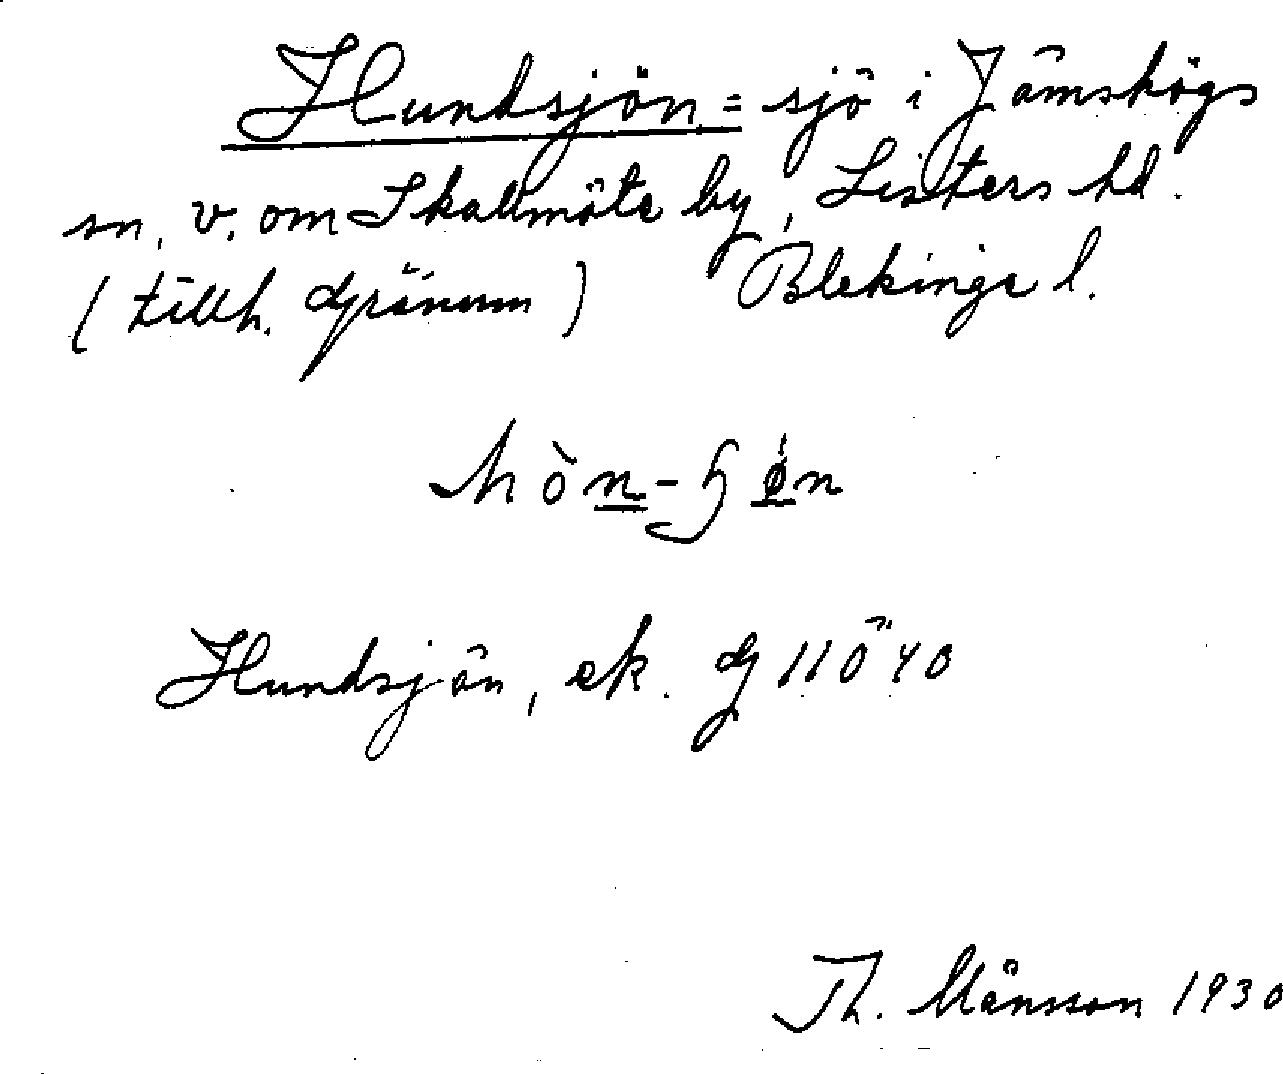 Hundsjön = sjö i Jämshögs
sn, v. om Skallmöte by, Listers hd.
(tillh. Gränum) Blekinge l.
hòn-ʃǿn
Hundsjön, ek. g 11 ö 40
Th. Månsson 1930